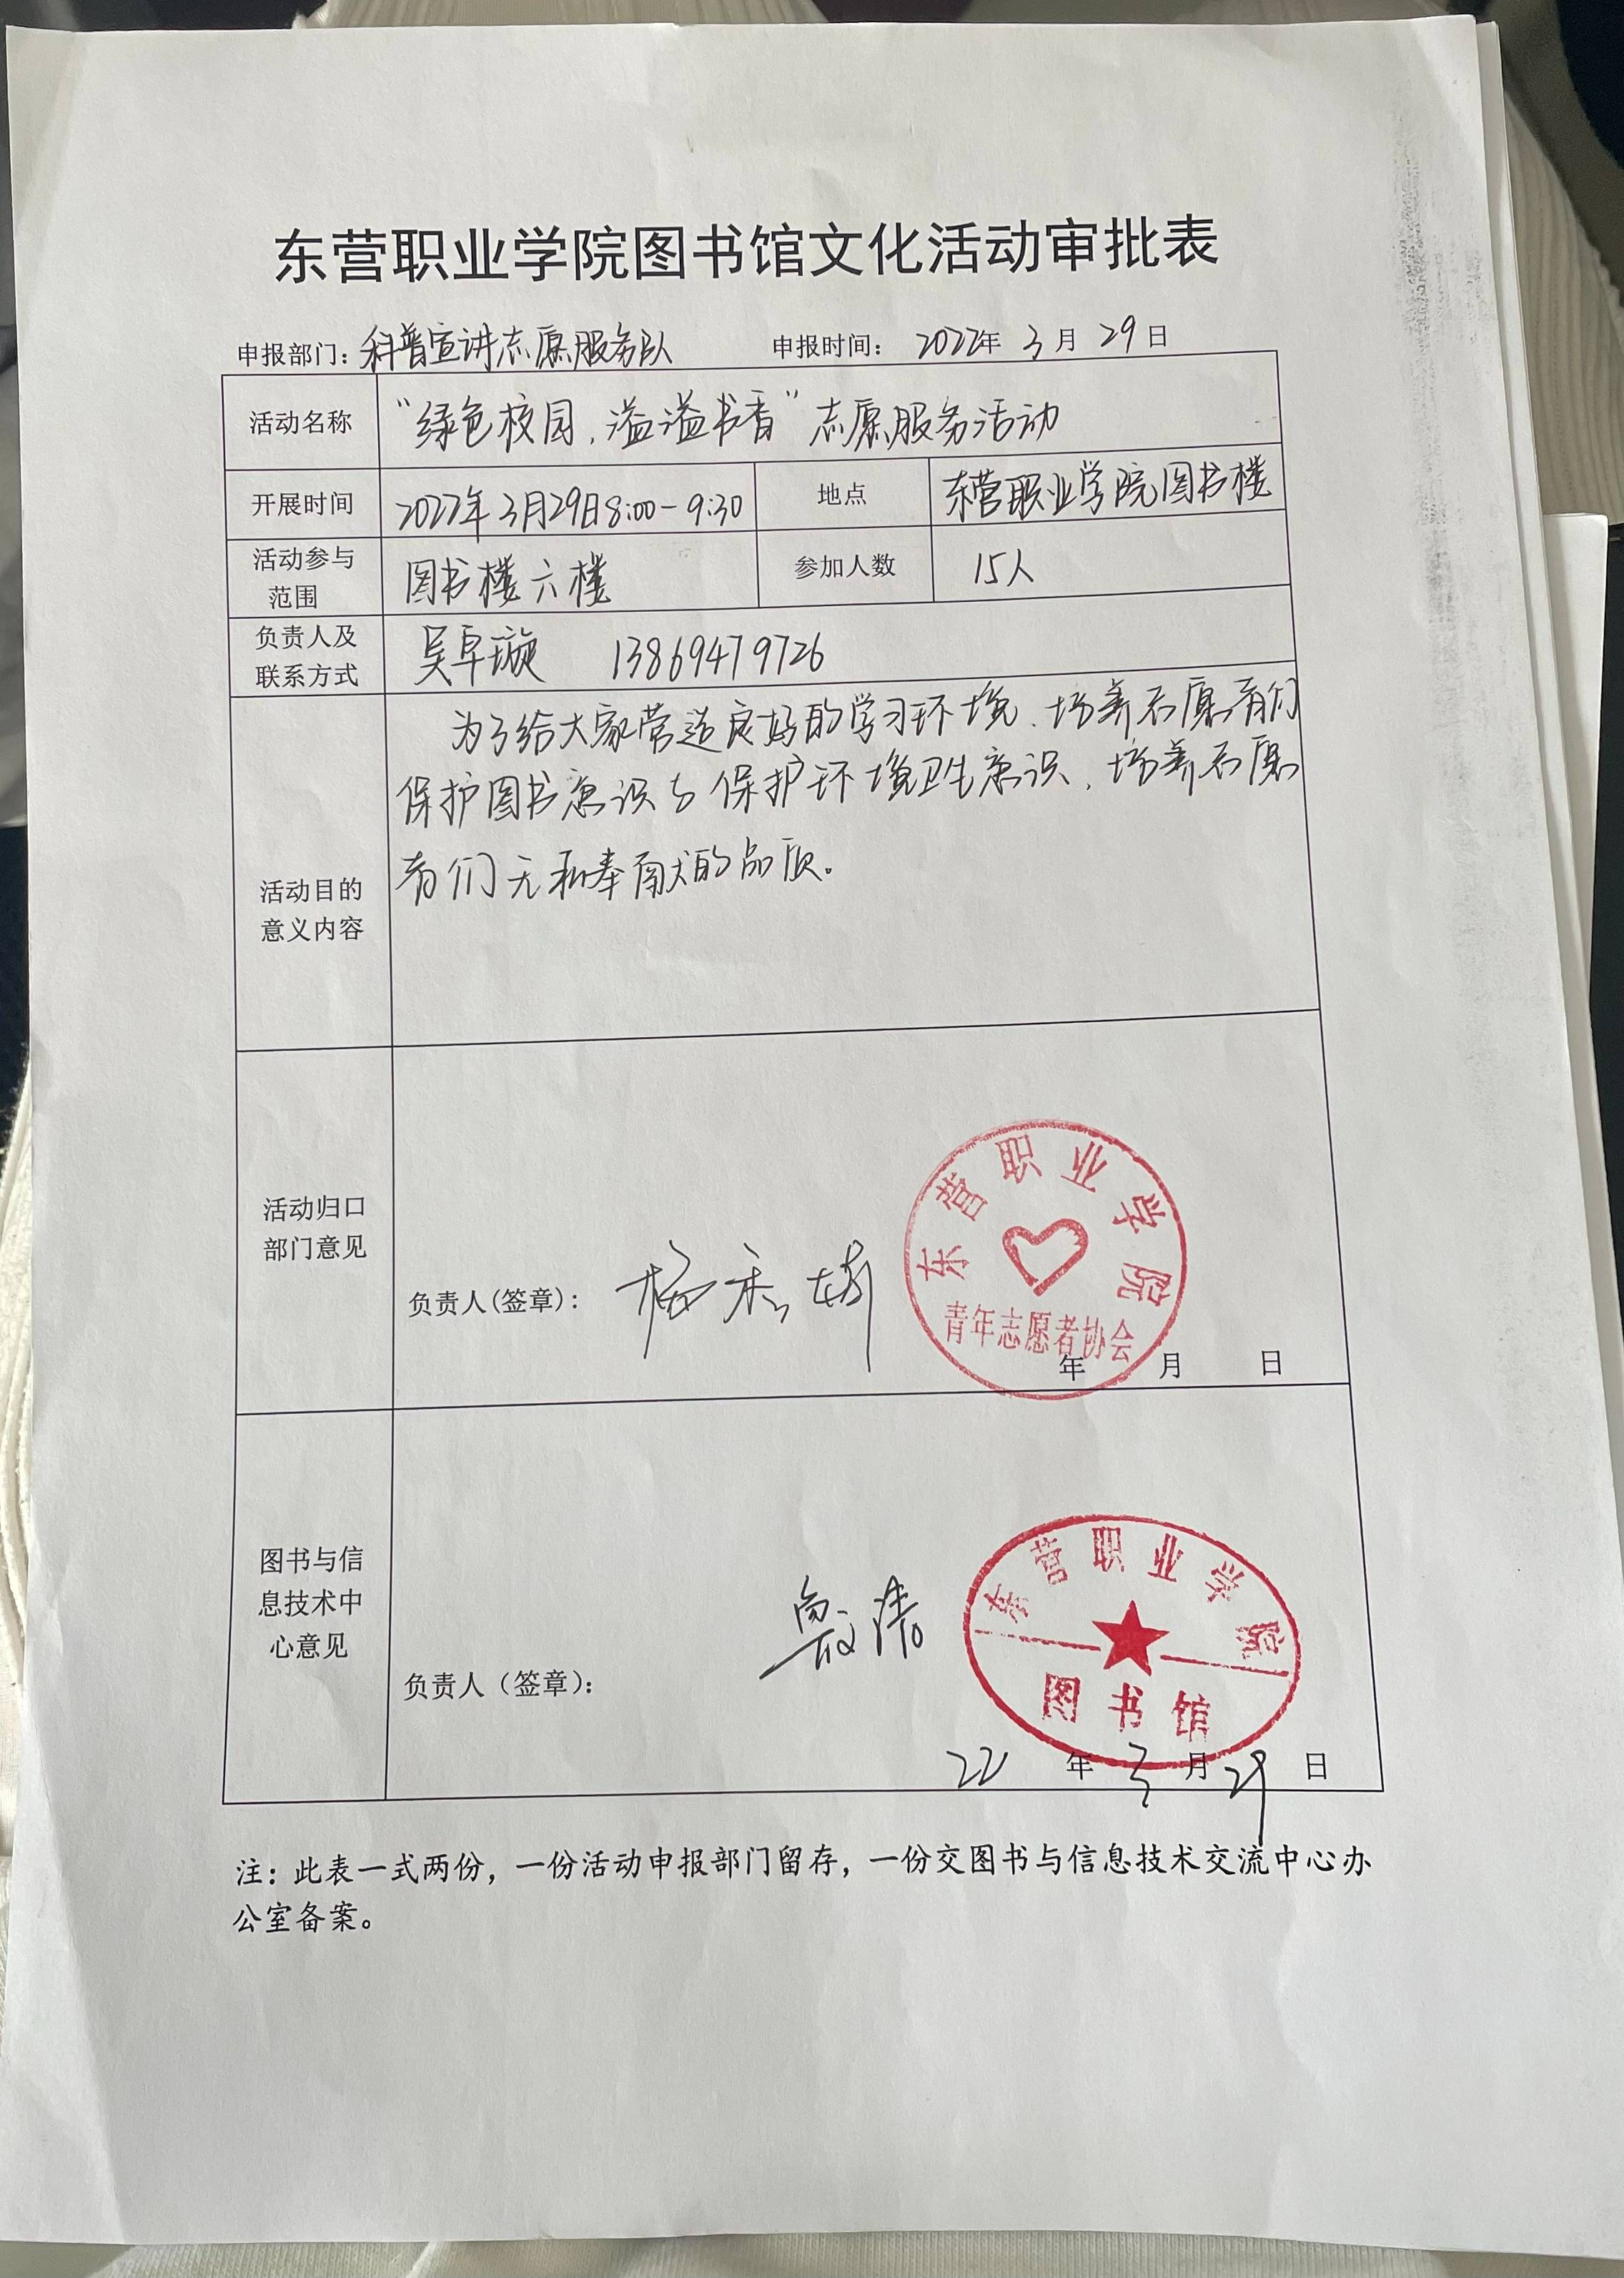 东营职业学院图书馆文化活动审批表
申报部门：科普宣讲志愿服务队 申报时间： 2022年 3月 29日
活动名称 “绿色校园，溢溢书香”志愿服务活动
开展时间 2022年3月29日8:00-9:30 地点 东营职业学院图书楼
活动参与
范围
图书楼六楼 参加人数 15人
负责人及
联系方式
吴卓璇 13869479726
为了给大家营造良好的学习环境、培养志愿者们
保护图书意识与保护环境卫生意识、培养志愿
者们无私奉献的品质。
活动目的
意义内容
活动归口
部门意见
负责人(签章)：
东营职业学院
青年志愿者协会
年 月 日
图书与信
息技术中
心意见
负责人（签章）：
东营职业学院
图书馆
22 年 3 月 29 日
注：此表一式两份，一份活动申报部门留存，一份交图书与信息技术交流中心办
公室备案。